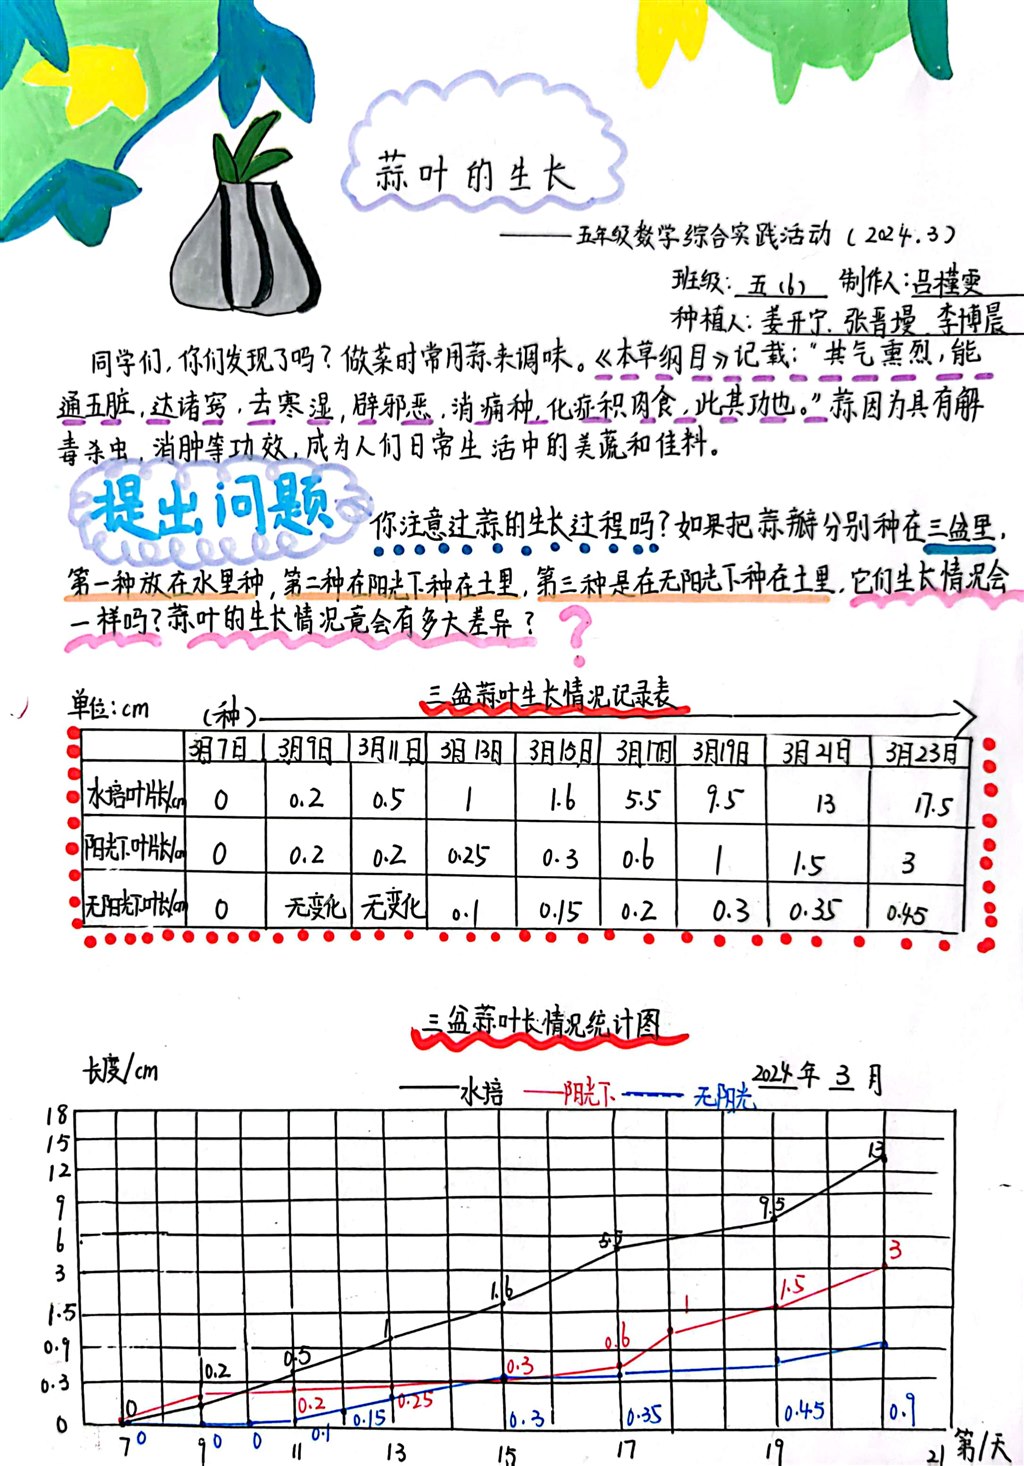 蒜叶的生长
——五年级数学综合实践活动(2024.3)
班级:五(6) 制作人:吕槿雯
种植人:姜开宁.张晋墁.李博晨
同学们,你们发现了吗?做菜时常用蒜来调味。《本草纲目》记载:"其气熏烈,能
通五脏,达诸窍,去寒湿,辟邪恶,消痈种,化症积肉食,此其功也。"蒜因为具有解
毒杀虫,消肿等功效,成为人们日常生活中的美蔬和佳料。
提出问题
你注意过蒜的生长过程吗?如果把蒜瓣分别种在三盆里,
第一种放在水里种,第二种在阳光下种在土里,第三种是在无阳光下种在土里,它们生长情况会
一样吗?蒜叶的生长情况竟会有多大差异?
?
三盆蒜叶生长情况记录表
单位:cm (种)
3月7日 3月9日 3月11日 3月13日 3月15日 3月17日 3月19日 3月21日 3月23日
水培叶片长/cm 0 0.2 0.5 1 1.6 5.5 9.5 13 17.5
阳光下叶片长/cm 0 0.2 0.2 0.25 0.3 0.6 1 1.5 3
无阳光下叶长/cm 0 无变化 无变化 0.1 0.15 0.2 0.3 0.35 0.45
三盆蒜叶长情况统计图
长度/cm
2024年3月
水培 阳光下 无阳光
18
15
12
9
6
3
1.5
0.9
0.3
0
0 0.2 0.5 1 1.6 5.5 9.5 13
0.2 0.25 0.3 0.6 1 1.5 3
0 0 0 0.1 0.15 0.3 0.35 0.45 0.9
7 9 11 13 15 17 19 21 第/天